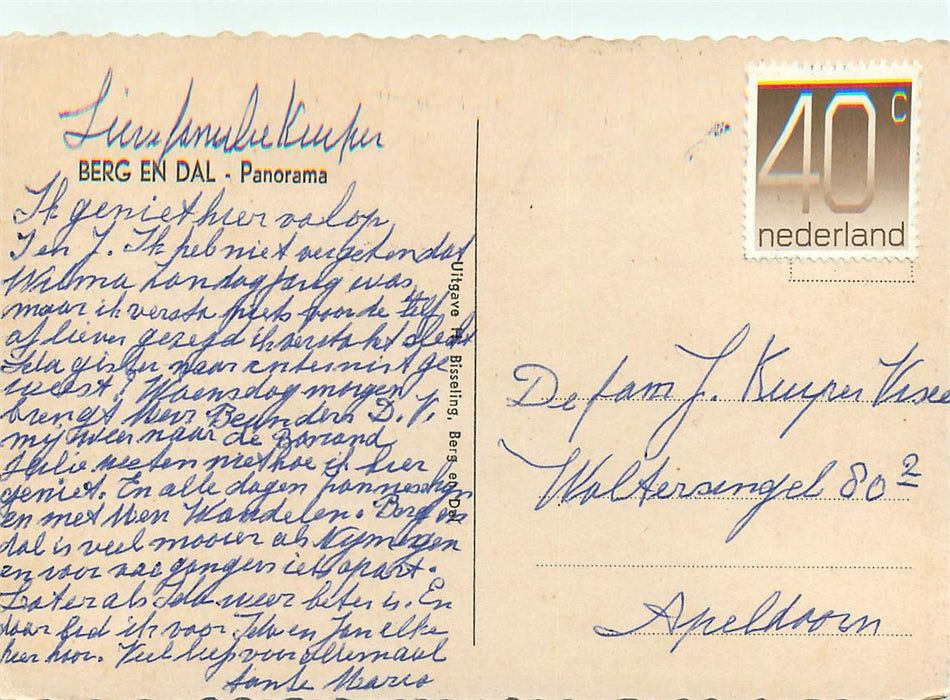 Lieve familie Kuiper
BERG EN DAL - Panorama
Ik geniet hier volop
I en J. Ik heb niet vergeten dat
Wilma Zondag jarig was,
maar ik versta niets door de telf
of liever gezegd ik versta het slecht
Ida gister naar internist ge
weest! Woensdag morgen
brengt Mevr Beunders D.V.
mij weer naar de
Jullie weten niet hoe ik hier
geniet. En alle dagen
en met Wandelen. Berg en
dal is veel mooier als Nijmegen
en voor iets apart.
Later als Ida weer beter is. En
daar bid ik voor Ida en Jan elke
keer hoor. Veel liefs voor allemaal
tante Marie
Uitgave H. Bisseling, Berg en Dal
40c
nederland
De fam J. Kuiper
Woltersingel 80 2
Apeldoorn